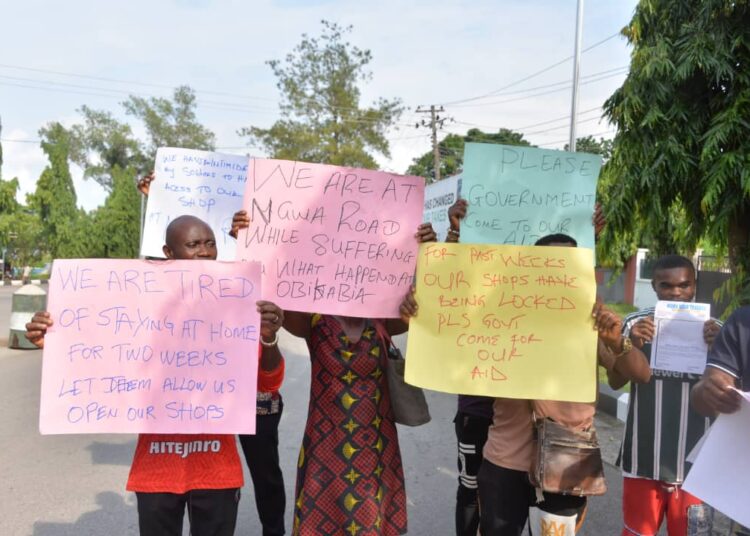 WE HAVE BEEN
BY SOLDIERS TO
ACESS TO OUR
SHOP
WE ARE AT
NGWA ROAD
WHILE SUFFERING
WHAT HAPPEND AT
OBIKABIA
PLEASE
GOVERNMENT
COME TO OUR
AID
HAS CHANGED
WE ARE TIRED
OF STAYING AT HOME
FOR TWO WEEKS
LET DEEM ALLOW US
OPEN OUR SHOPS
FOR PAST WEEKS
OUR SHOPS HAVE
BEING LOCKED
PLS GOVT
COME FOR
OUR
AID
HITEJINRO